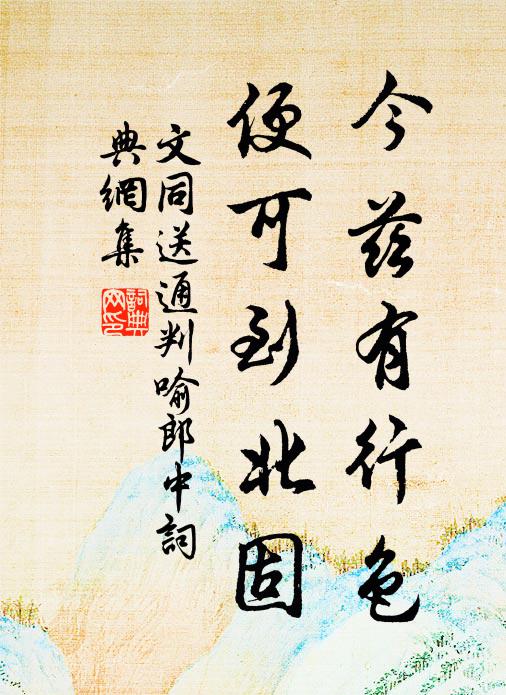 今茲有行色
便可到北固
文同送通判喻郎中詞
典網集
詞典網印